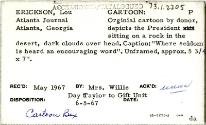 ACCESSIONED/CATALOGUED 73.1.2305
ERICKSON, Lou CARTOON: P
Atlanta Journal Orginial cartoon by donor,
Atlanta, Georgia depicts the President
sitting on a rock in the
desert, dark clouds over head. Caption:"Where seldom
is heard an encouraging word". Unframed, approx. 5 3/4
x 7".
REC'D: May 1967 BY: Mrs. Willie ACK'D
Day Taylor to Gift Unit
DISPOSITION: 6-8-67
Cartoon Box